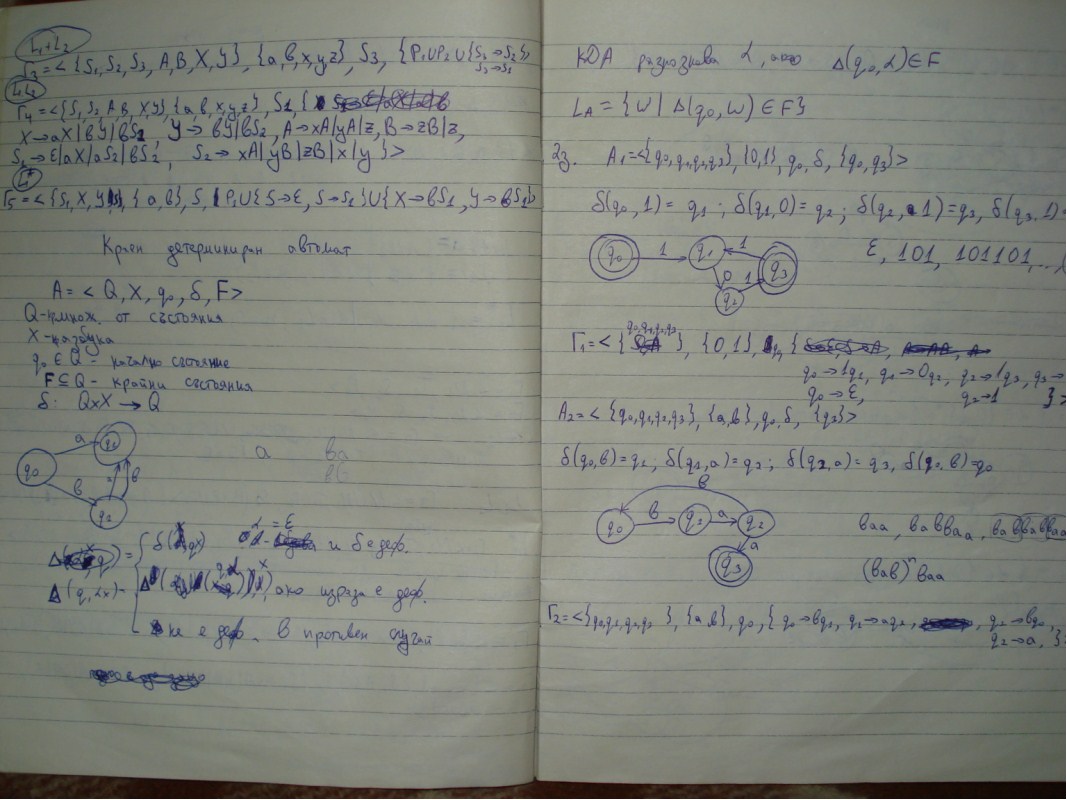 L₁+L₂
Г₃=<{S₁, S₂, S₃, A, B, X, Y}, {a, b, x, y, z}, S₃, {P₁∪P₂∪{S₃→S₂
S₃→S₁}>
L₁L₂
Г₄=<{S₁, S₂, A, B, X, Y}, {a, b, x, y, z}, S1, {
X→aX|bY|bS₂ Y→ bY|bS₂, A→xA|yA|z, B→zB|z,
S₁→ε|aX|aS₂|bS₂, S₂→ xA|yB|zB|x|y}>
Г₅=<{S₁, X, Y, S}, {a, b}, S, P₁∪{S→ε, S→S₁}∪{X→bS1, Y→bS1}>
Краен детерминиран автомат
A = < Q, X, q₀, δ, F>
Q-кр.множ. от състояния
X-азбука
q₀ ∈ Q - начално състояние
F ⊆ Q - крайни състояния
δ: Q×X → Q
a
b
q₀
q₁
q₂
b
a ba
bb
α = ε
и δ е деф.
Δ(q, αx)=
, ако израза е деф.
не е деф. в противен случай
КДА разпознава α, ако Δ(q₀, α) ∈ F
L_A = {W | Δ(q₀, W) ∈ F}
2з. A₁=<{q₀, q₁, q₂, q₃}, {0,1}, q₀, δ, {q₀, q₃}>
δ(q₀, 1) = q₁ ; δ(q₁, 0) = q₂ ; δ(q₂, 1)=q₃, δ(q₃, 1)=
q₀ 1 q₁ 1 q₃ 0 1 q₂
ε, 101, 101101, ...,
q₀, q₁, q₂, q₃
Г₁=< { }, {0,1}, q₀, {
q₀→1q₁, q₁→0q₂, q₂→1q₃, q₃→
q₀→ε, q₂→1 }>
A₂=< {q₀, q₁, q₂, q₃}, {a, b}, q₀, δ, {q₃}>
δ(q₀, b) = q₁; δ(q₁, a) = q₂; δ(q₂, a) = q₃, δ(q₂, b)=q₀
b
q₀ b q₁ a q₂
a
q₃
baa, babbaa, babbabbaa
(bab)ⁿbaa
Г₂=<{q₀, q₁, q₂, q₃ }, {a, b}, q₀, {q₀→bq₁, q₁→aq₂, , q₂→bq₀,
q₂→a, }>